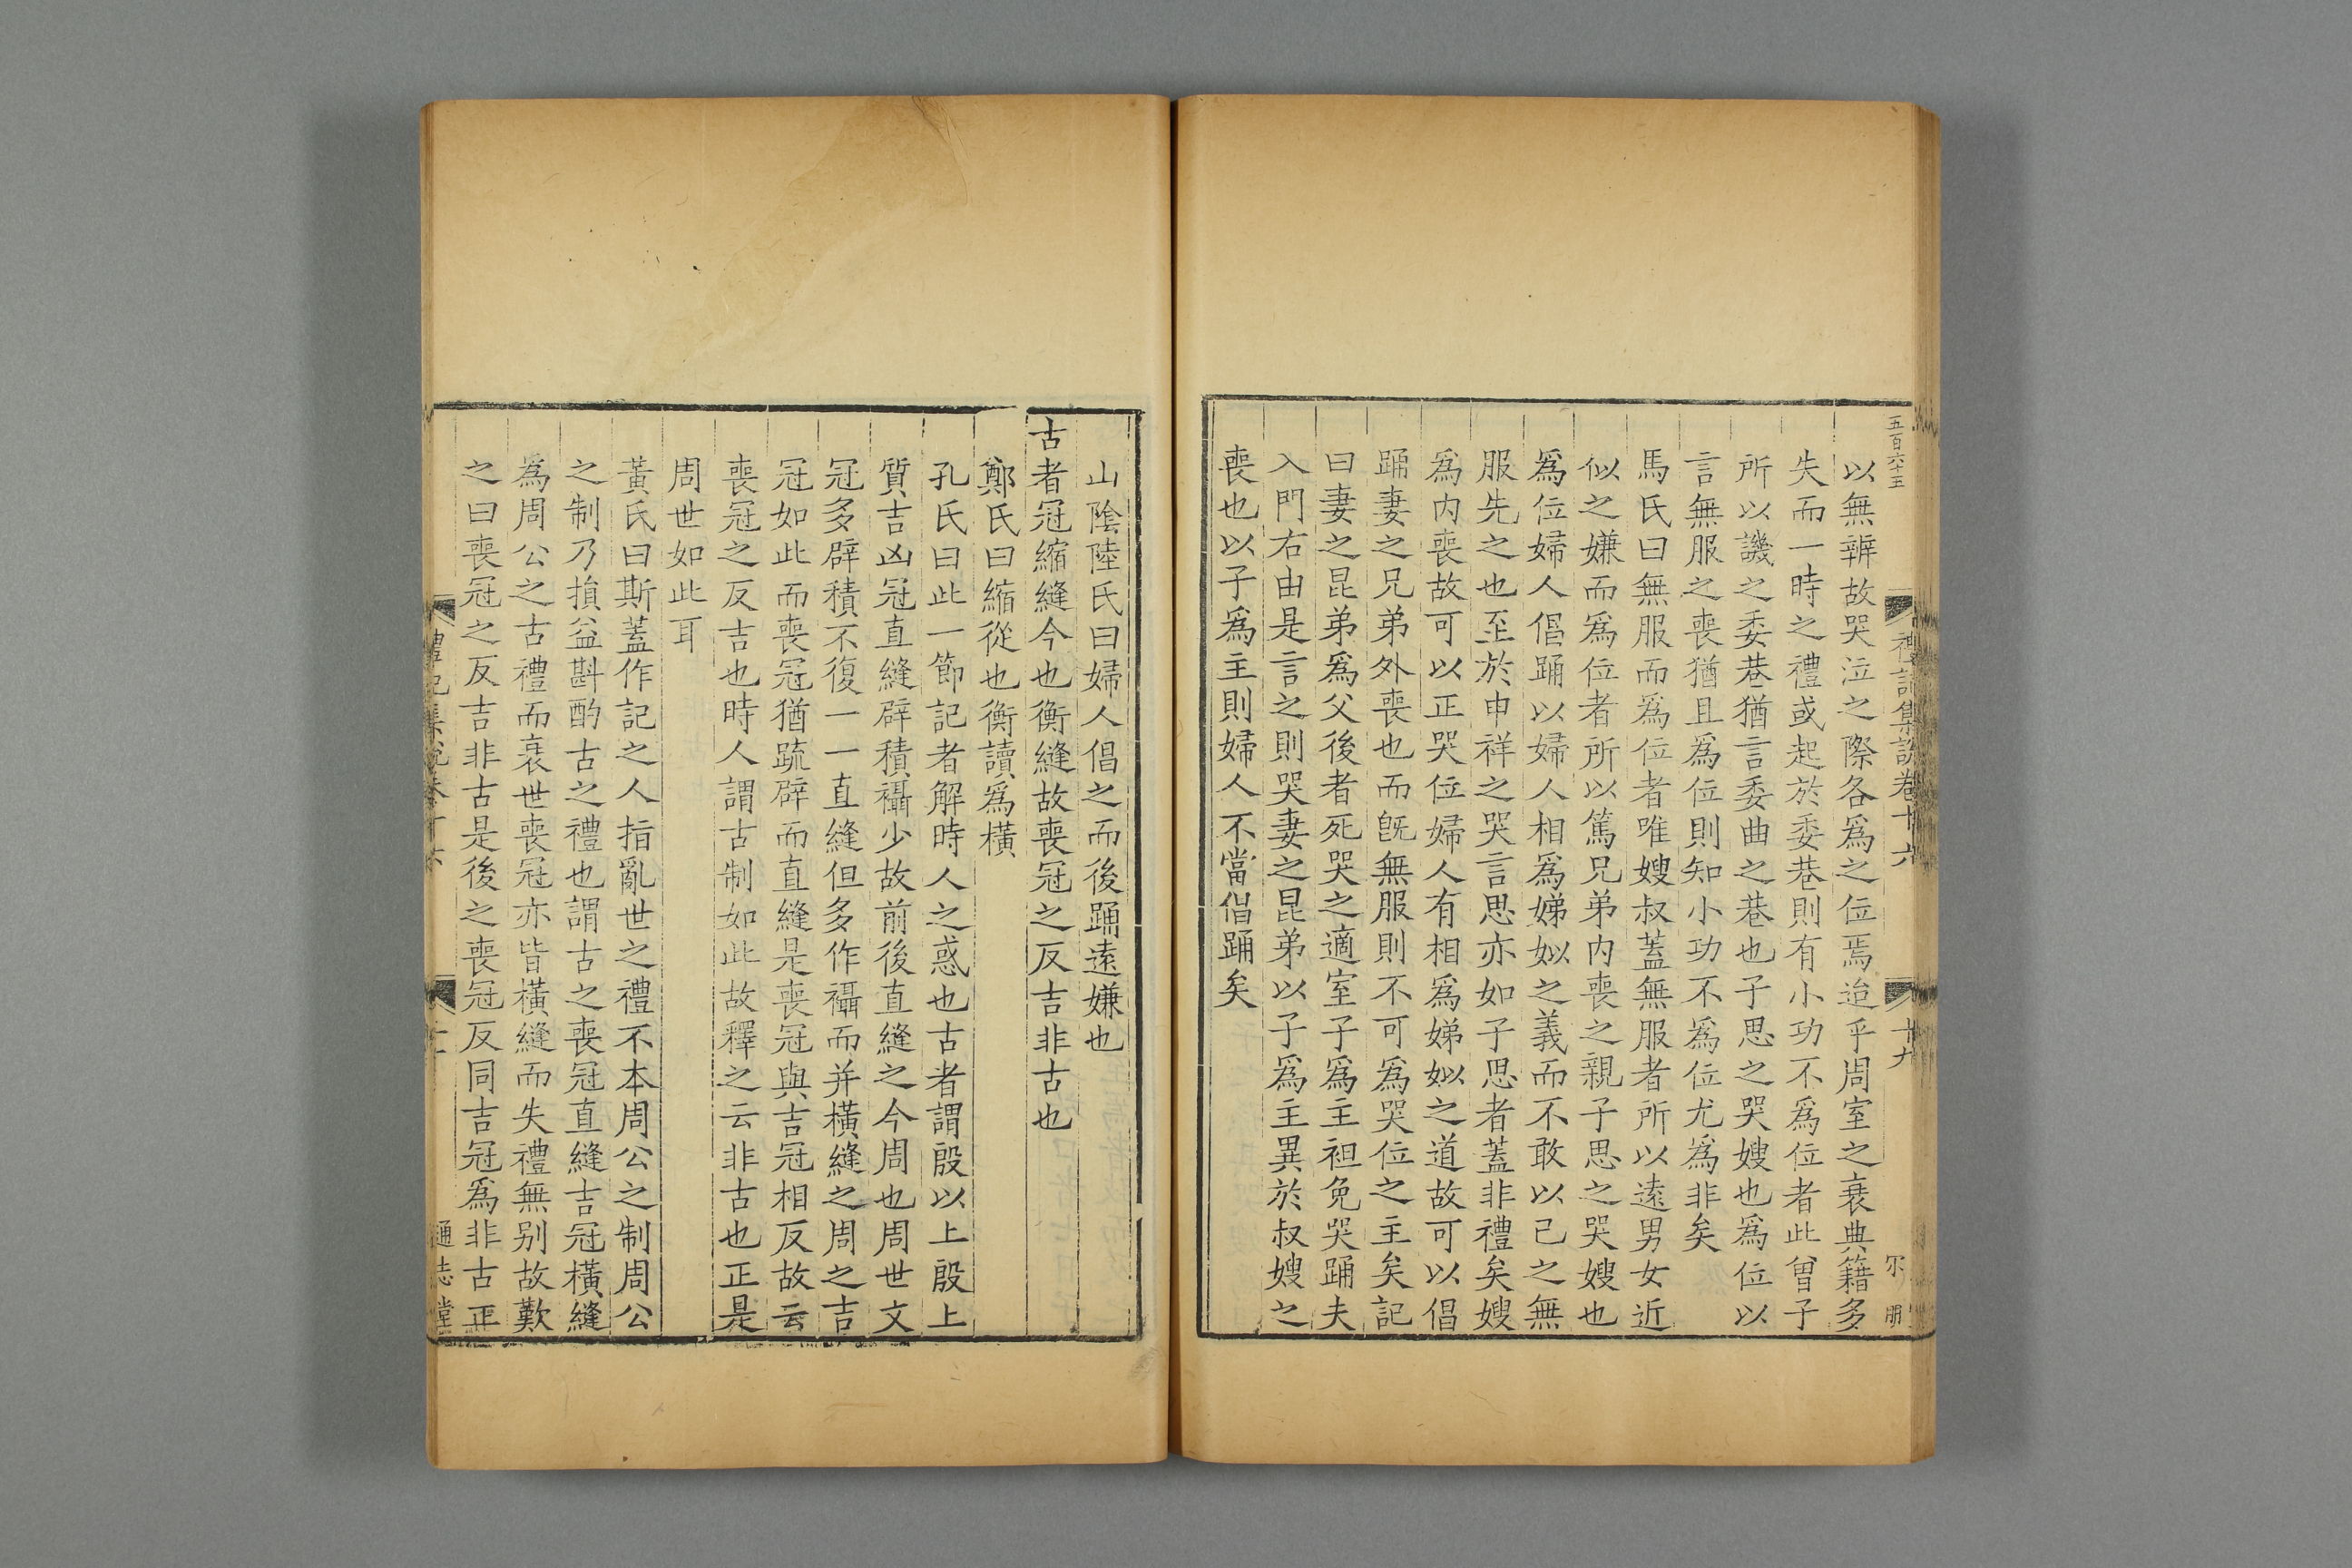 五百六十五
禮記集說卷十六
十九
朋
以無辨故哭泣之際各爲之位焉迨乎周室之衰典籍多
失而一時之禮或起於委巷則有小功不爲位者此曾子
所以譏之委巷猶言委曲之巷也子思之哭嫂也爲位以
言無服之喪猶且爲位則知小功不爲位尤爲非矣
馬氏曰無服而爲位者唯嫂叔蓋無服者所以遠男女近
似之嫌而爲位者所以篤兄弟内喪之親子思之哭嫂也
爲位婦人倡踊以婦人相爲娣姒之義而不敢以己之無
服先之也至於申祥之哭言思亦如子思者蓋非禮矣嫂
爲内喪故可以正哭位婦人有相爲娣姒之道故可以倡
踊妻之兄弟外喪也而旣無服則不可爲哭位之主矣記
曰妻之昆弟爲父後者死哭之適室子爲主袒免哭踊夫
入門右由是言之則哭妻之昆弟以子爲主異於叔嫂之
喪也以子爲主則婦人不當倡踊矣
山陰陸氏曰婦人倡之而後踊遠嫌也
古者冠縮縫今也衡縫故喪冠之反吉非古也
鄭氏曰縮從也衡讀爲橫
孔氏曰此一節記者解時人之惑也古者謂殷以上殷上
質吉凶冠直縫辟積襵少故前後直縫之今周也周世文
冠多辟積不復一一直縫但多作襵而并橫縫之周之吉
冠如此而喪冠猶疏辟而直縫是喪冠與吉冠相反故云
喪冠之反吉也時人謂古制如此故釋之云非古也正是
周世如此耳
黃氏曰斯蓋作記之人指亂世之禮不本周公之制周公
之制乃損益斟酌古之禮也謂古之喪冠直縫吉冠橫縫
爲周公之古禮而衰世喪冠亦皆橫縫而失禮無别故歎
之曰喪冠之反吉非古是後之喪冠反同吉冠爲非古正
禮記集說卷十六
通志堂